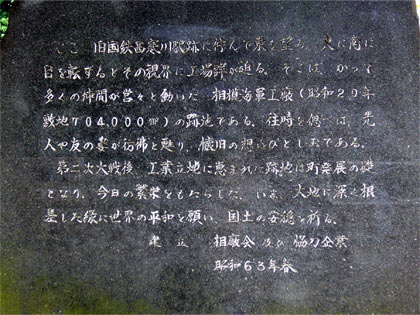 ここ 旧国鉄西寒川駅跡に佇んで東を望み、更に南に
目を転ずるとその視界に工場群が迫る。そこは、かつて
多くの仲間が営々と働いた 相模海軍工廠(昭和20年
敷地704,000㎡)の跡地である。往時を偲べば、先
人や友の姿が彷彿と甦り、懐旧の想いひとしおである。
第二次大戦後、工業立地に恵まれた跡地は町発展の礎
となり、今日の繁栄をもたらした。いま、大地に深く根
差した緑に世界の平和を願い、国土の安穏を祈る。
建立 相廠会 及び 協力企業
昭和63年春